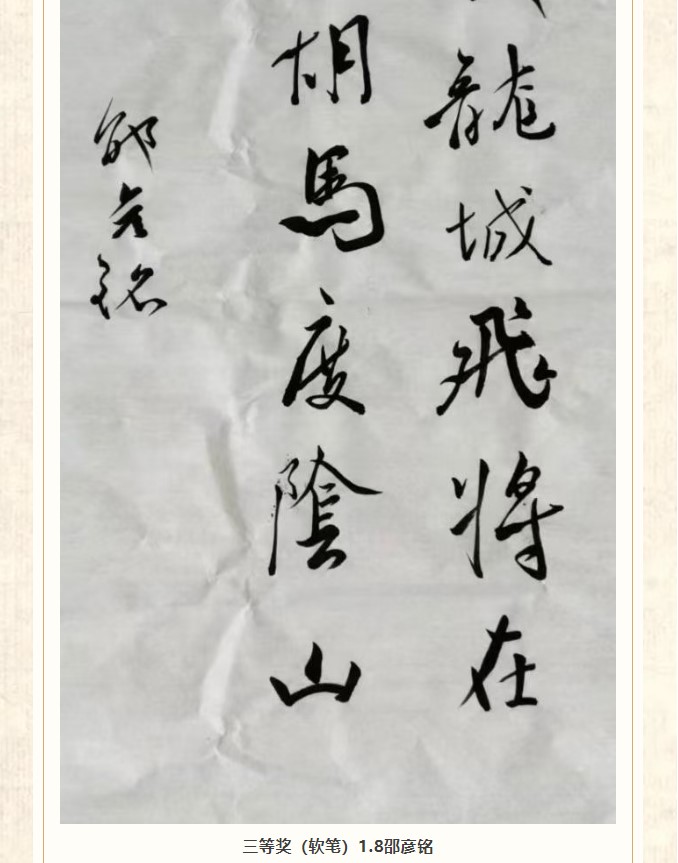 龍城飛將在
胡馬度陰山
邵彦铭
三等奖（软笔）1.8邵彦铭